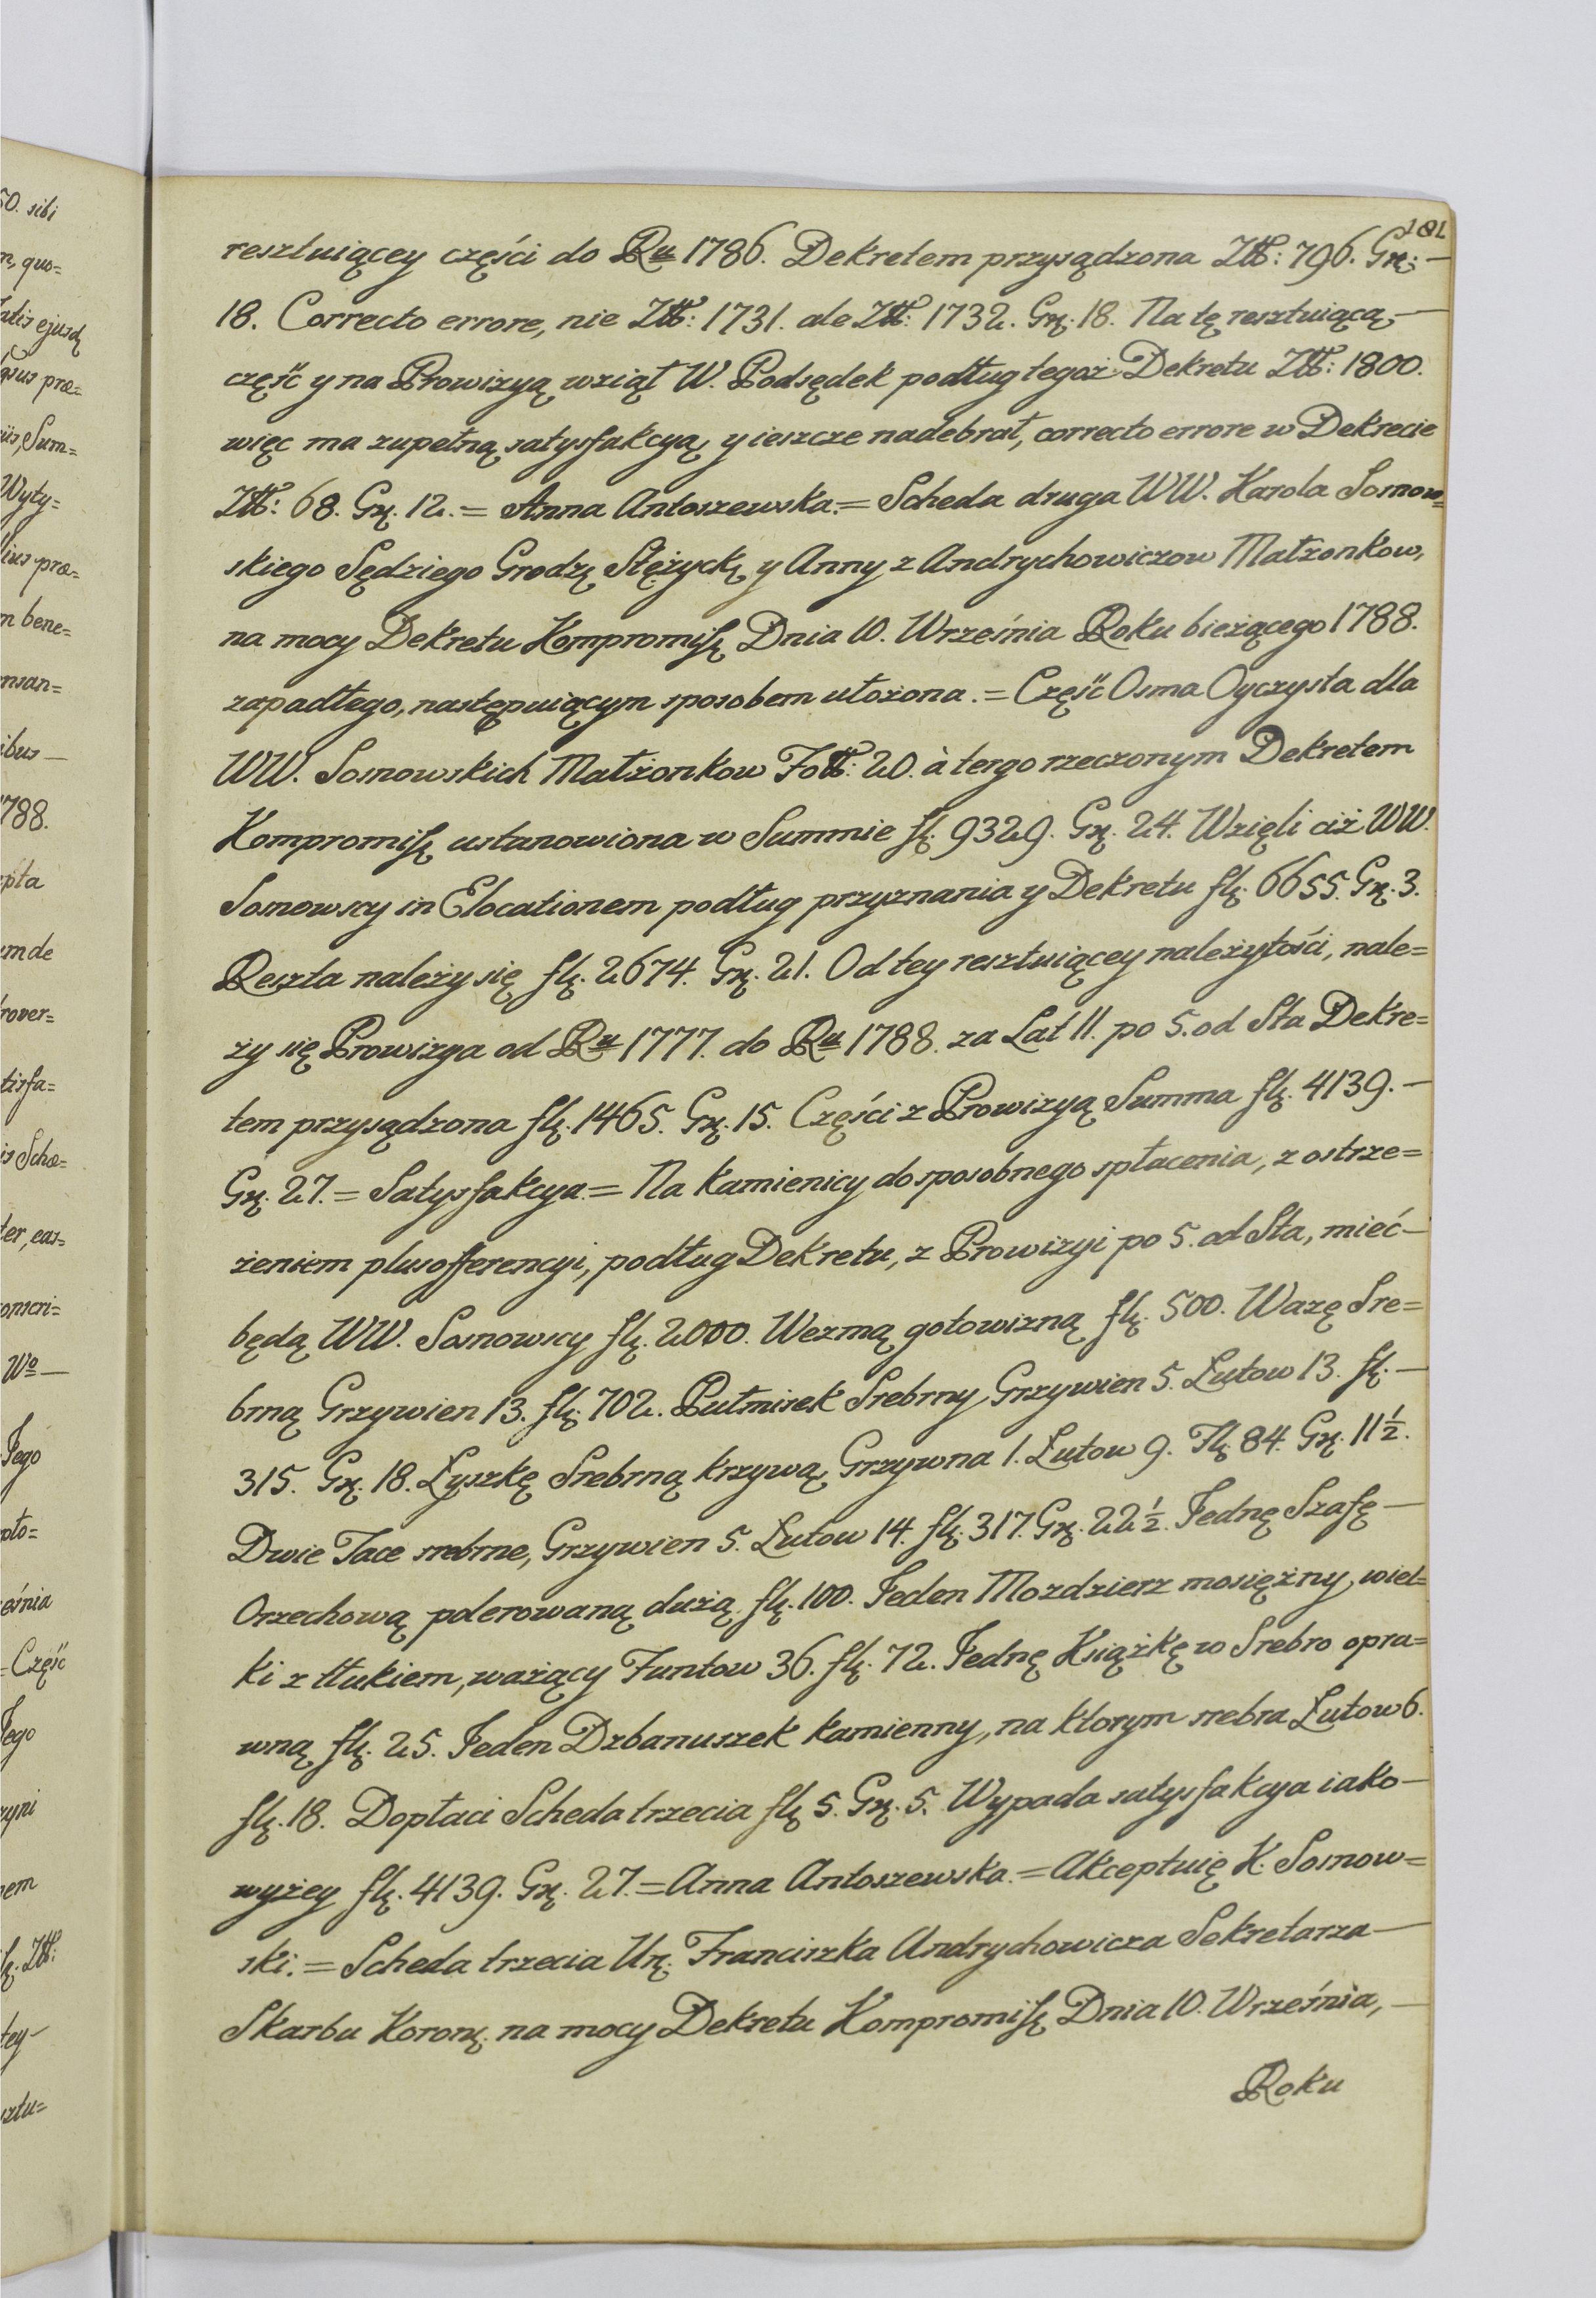 181
resztuiącey części do Ru 1786. Dekretem przysądzona Złł: 796. Grę: —
18. Correcto errore, nie Złł: 1731. ale Złł: 1732. Grę. 18. Na tę resztuiącą —
część y na Prowizyą wziął W. Podsędek podług tegoż Dekretu Złł: 1800.
więc ma zupełną satysfakcyą, y ieszcze nadebrał, correcto errore w Dekrecie
Złł: 68. Grę. 12. = Anna Antoszewska. = Scheda druga WW. Karola Sosnow=
skiego Sędziego Grodzę Stężyckę y Anny z Andrychowiczow Małżonkow,
na mocy Dekretu Kompromisę Dnia 10. Września Roku bieżącego 1788.
zapadłego, następuiącym sposobem ułożona. = Część Osma Oyczysta dla
WW. Sosnowskich Małżonkow Foll: 20. à tergo rzeczonym Dekretem
Kompromisę ustanowiona w Summie flę. 9329. Grę. 24. Wzięli ciż WW.
Sosnowscy in Elocationem podług przyznania y Dekretu flę. 6655. Grę. 3.
Reszta należy się flę. 2674. Grę. 21. Od tey resztuiącey należytości, nale=
ży się Prowizya od Ru 1777. do Ru 1788. za Lat 11. po 5. od Sta Dekre=
tem przysądzona flę. 1465. Grę. 15. Części z Prowizyą Summa flę. 4139. —
Grę. 27. = Satysfakcya. = Na Kamienicy do sposobnego spłacenia, z ostrze=
żeniem plusofferencyi, podług Dekretu, z Prowizyi po 5. od Sta, mieć —
będą WW. Sosnowscy flę. 2000. Wezmą gotowizną flę. 500. Wazę Sre=
brną Grzywien 13. flę. 702. Pułmisek Srebrny Grzywien 5. Łutow 13. flę. —
315. Grę. 18. Łyszkę Srebrną krzywą Grzywna 1. Łutow 9. Flę. 84. Grę. 11½.
Dwie Tace srebrne, Grzywien 5. Łutow 14. flę. 317. Grę. 22½. Jednę Szafę —
Orzechową polerowaną dużą flę. 100. Jeden Mozdzierz mosiężny, wiel=
ki z tłukiem, ważący Funtow 36. flę. 72. Jednę Książkę w Srebro opra=
wną flę. 25. Jeden Dzbanuszek kamienny, na ktorym srebra Łutow 6.
flę. 18. Dopłaci Scheda trzecia flę 5. Grę. 5. Wypada satysfakcya iako —
wyżey flę. 4139. Grę. 27. = Anna Antoszewska. = Akceptuię K. Sosnow=
ski. = Scheda trzecia Urę. Franciszka Andrychowicza Sekretarza —
Skarbu Koronę. na mocy Dekretu Kompromisę Dnia 10. Września, —
Roku